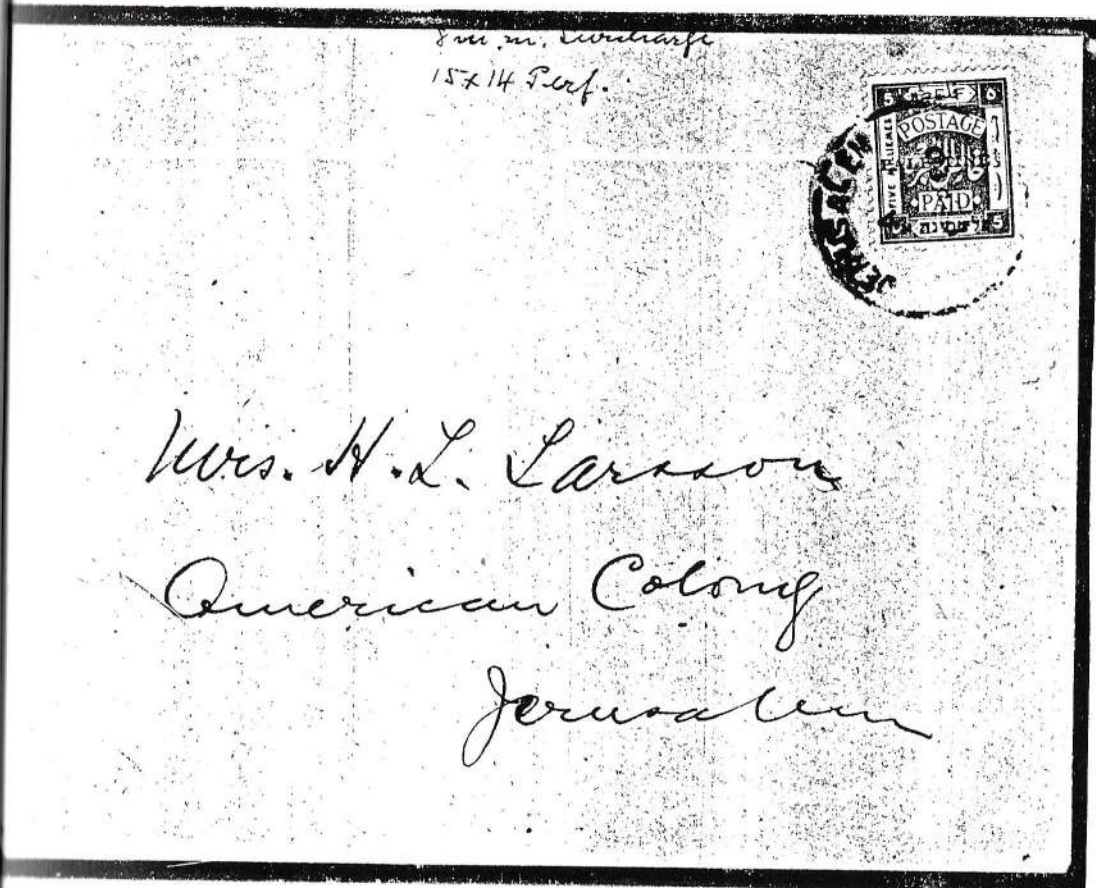 8 m.m. Surcharge
15 x 14 Perf.
5 E.E.F. ٥
POSTAGE
FIVE MILLIEMES
PAID
5
JERUSALEM
Mrs. H. L. Larsson
American Colony
Jerusalem